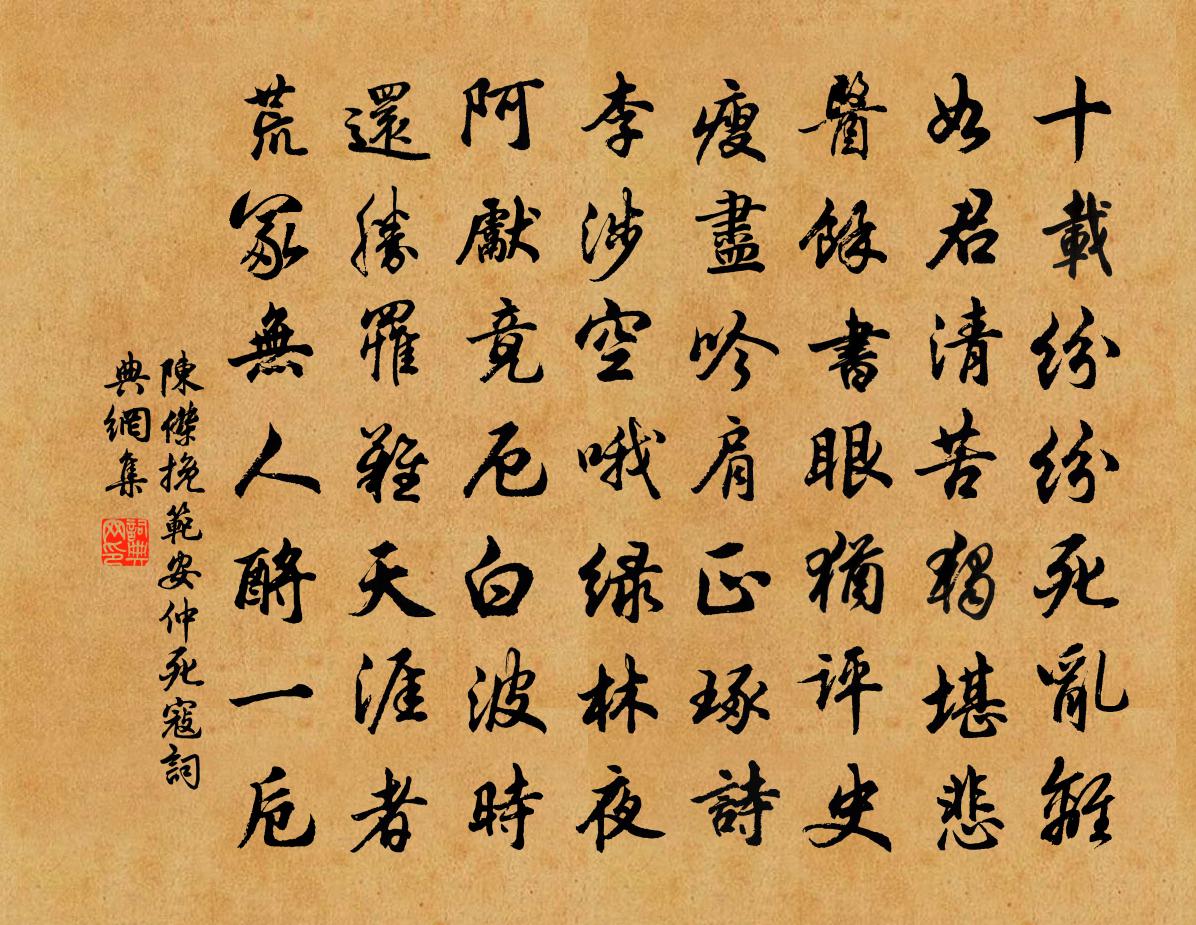 十載紛紛死亂離
如君清苦獨堪悲
醫餘書眼猶評史
瘦盡吟肩正琢詩
李涉空哦緑林夜
阿獻竟厄白波時
還勝罹難天涯者
荒冢無人酹一卮
陳傑挽範安仲死寇詞
典網集
詞典網印